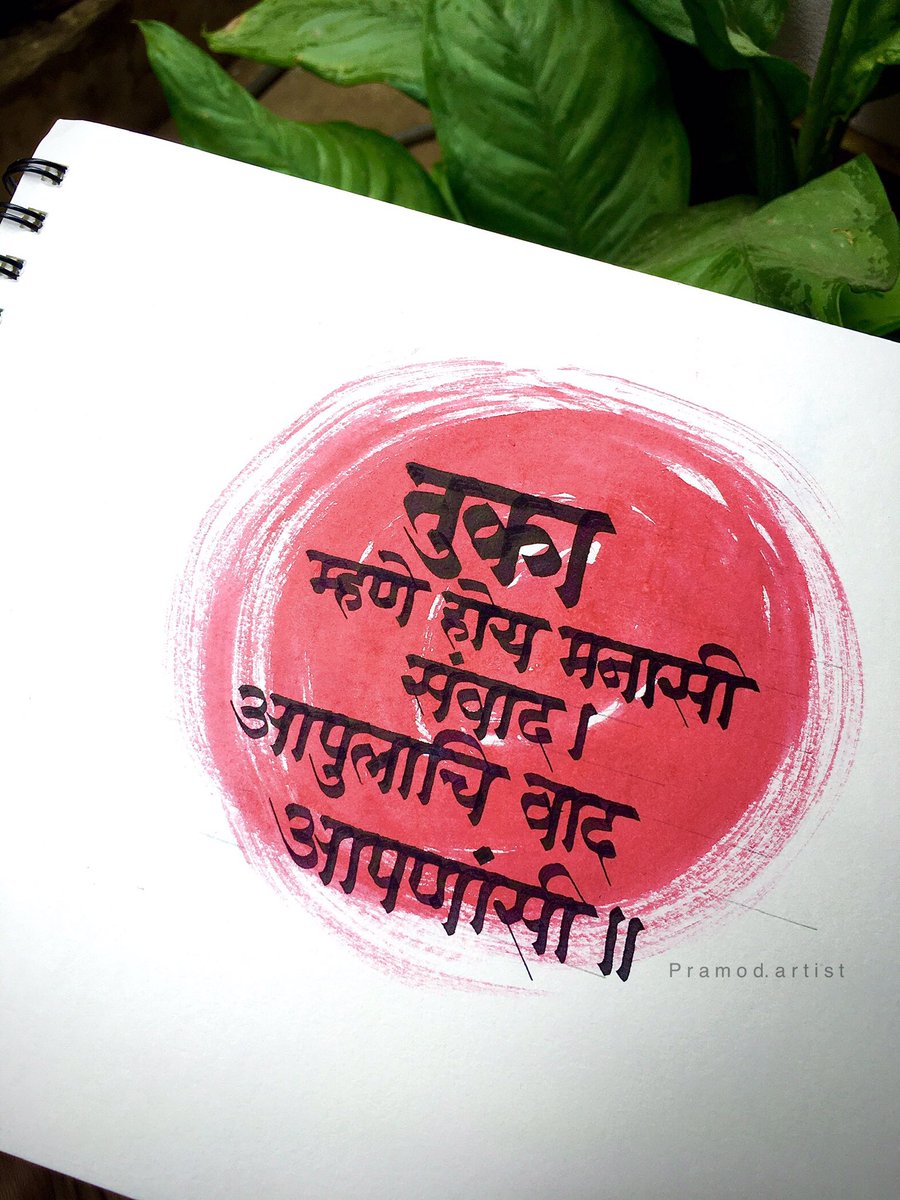 तुका
म्हणे होय मनासी
संवाद।
आपुलाचि वाद
आपणांसी॥
Pramod.artist